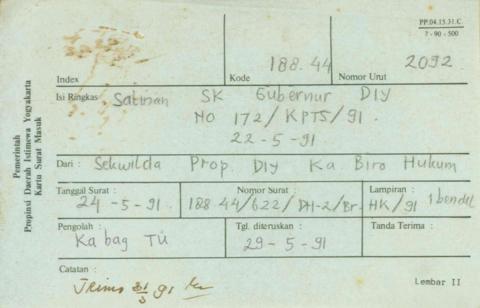 PP.04.15.31.C
7 - 90 - 500
Pemerintah
Propinsi Daerah Istimewa Yogyakarta
Kartu Surat Masuk
Index
Kode 188.44
Nomor Urut 2092
Isi Ringkas Salinan SK Gubernur DIY
No 172/KPTS/91.
22-5-91
Dari : Sekwilda Prop. DIY Ka Biro Hukum
Tanggal Surat : 24 -5-91
Nomor Surat : 188 44/622/DH-2/Br-HK/91
Lampiran : 1 bendel
Pengolah : Ka bag TU
Tgl. diteruskan : 29-5-91
Tanda Terima :
Catatan :
91
Lembar II